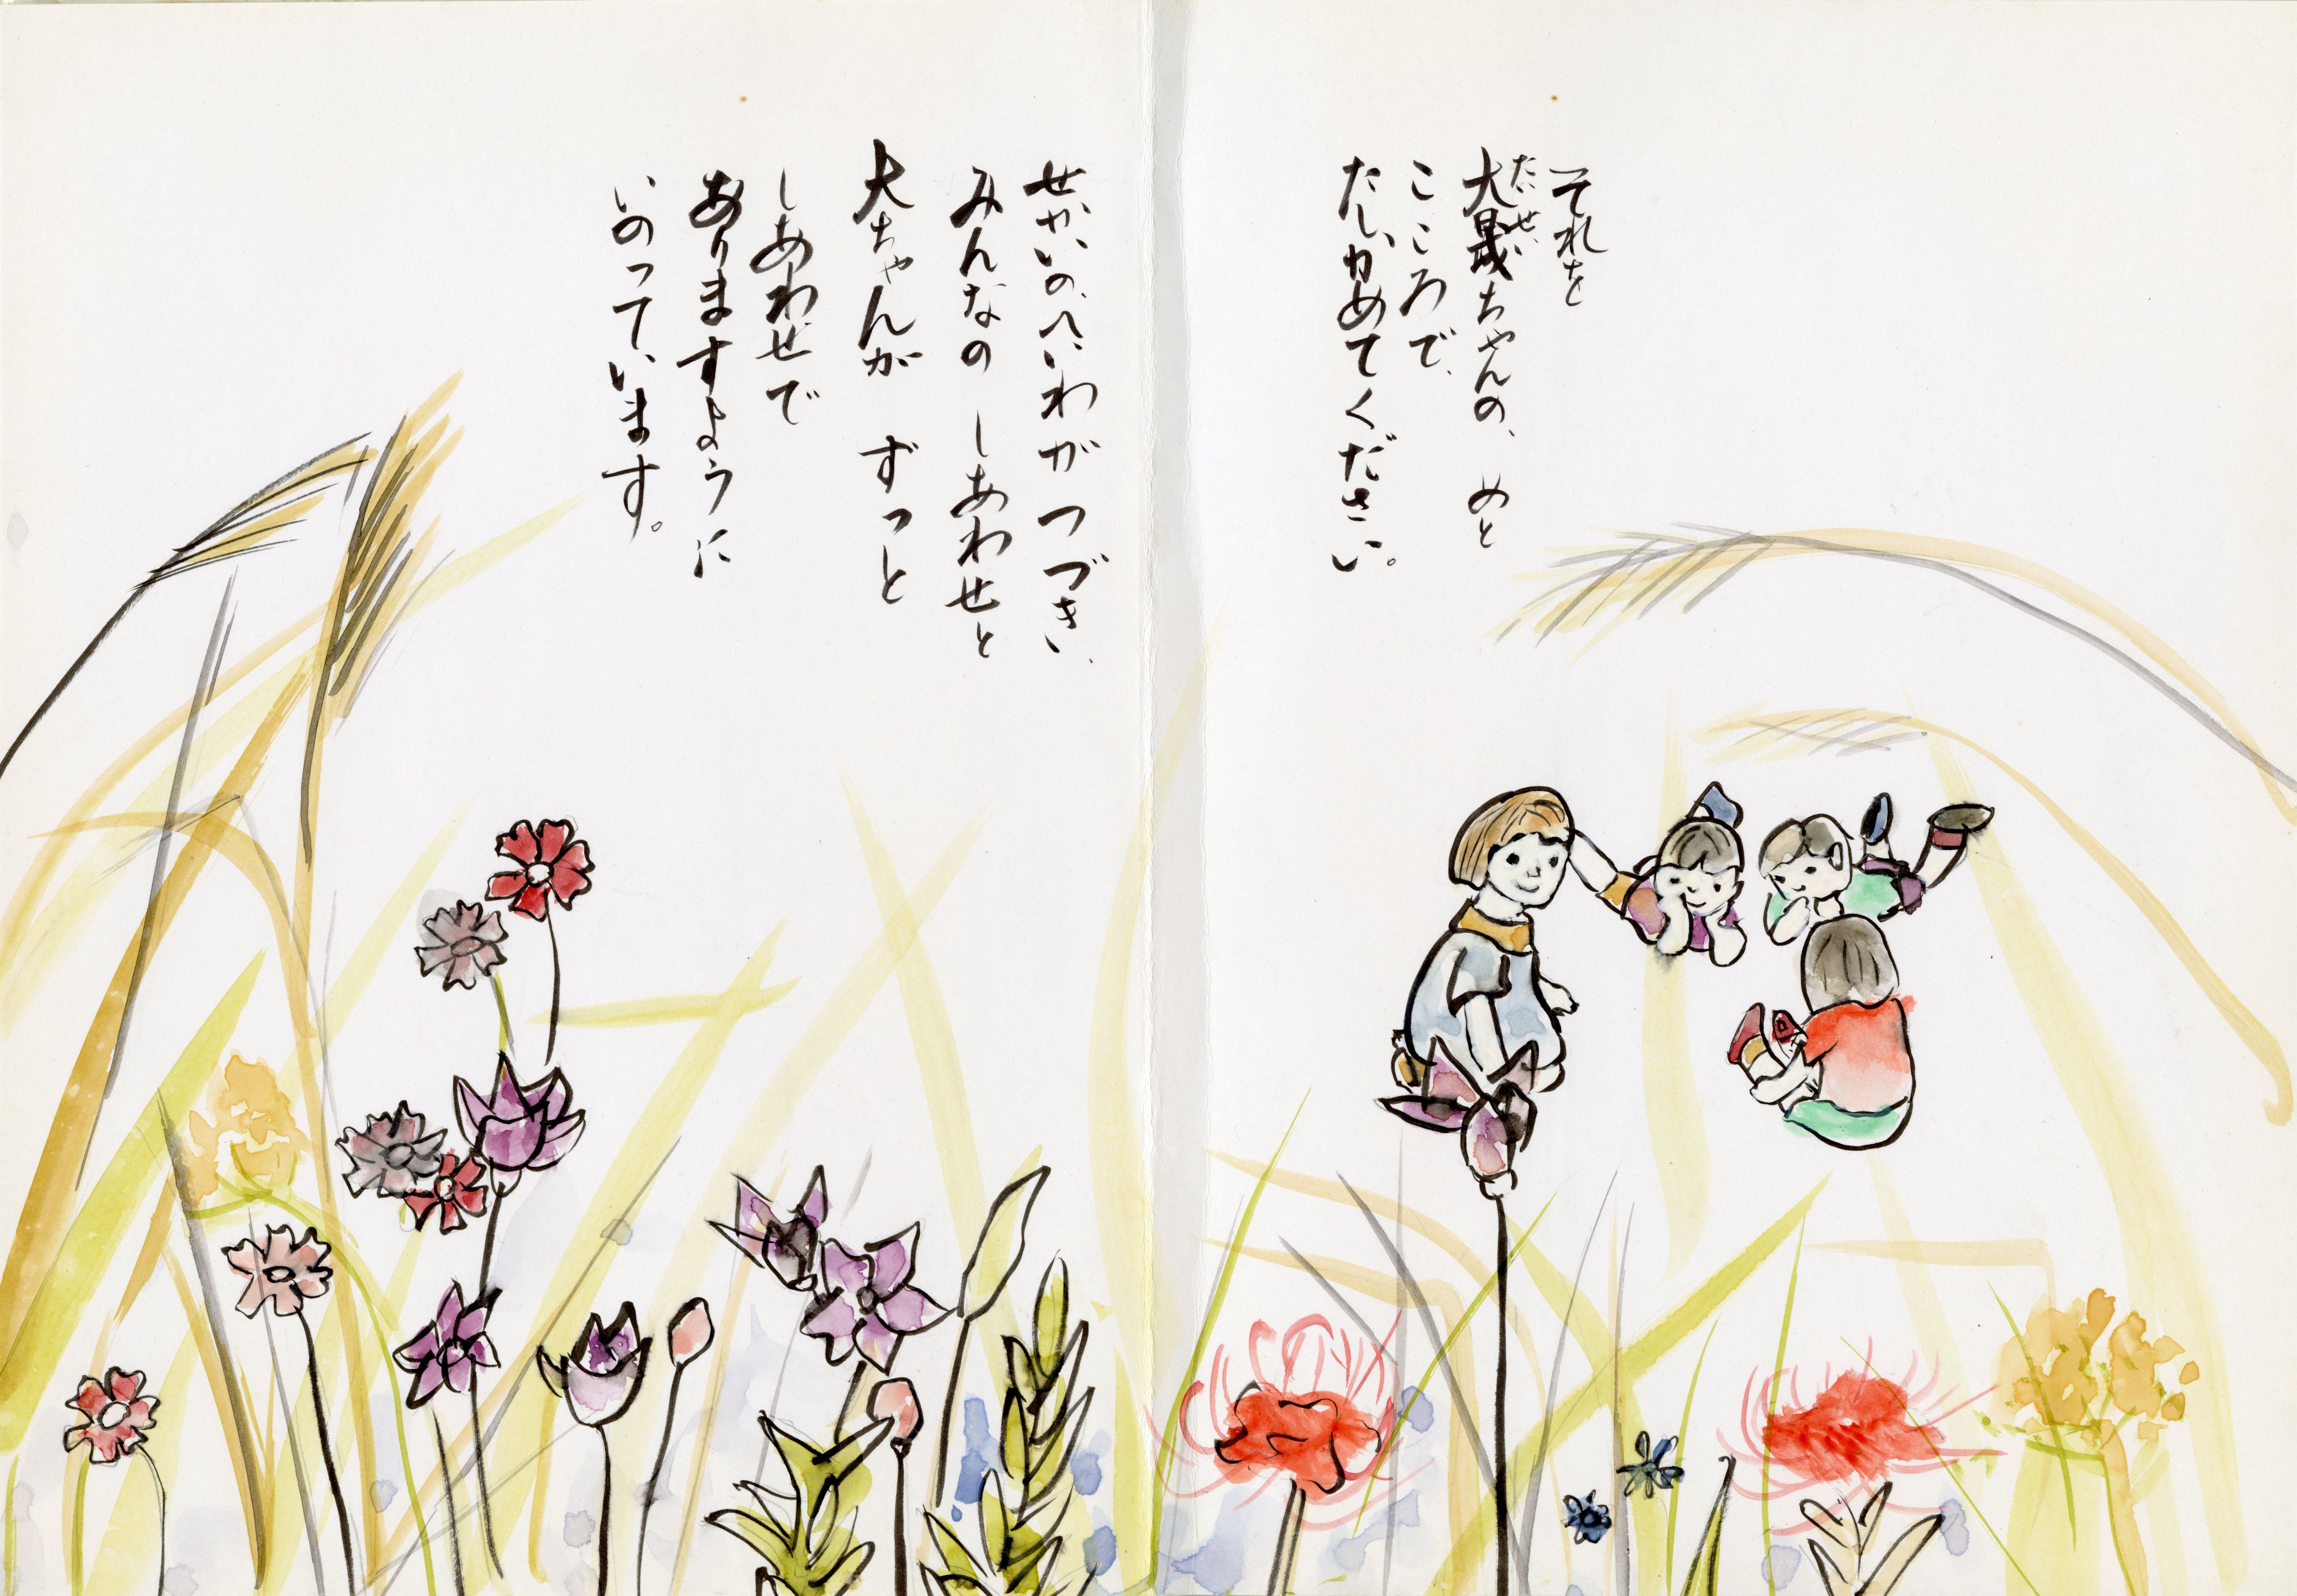 それを
たいせい
大晟ちゃんの、めと
こころで、
たしかめてください。
せかいのへいわがつづき、
みんなの しあわせと
大ちゃんが ずっと
しあわせで
ありますように
いのっています。